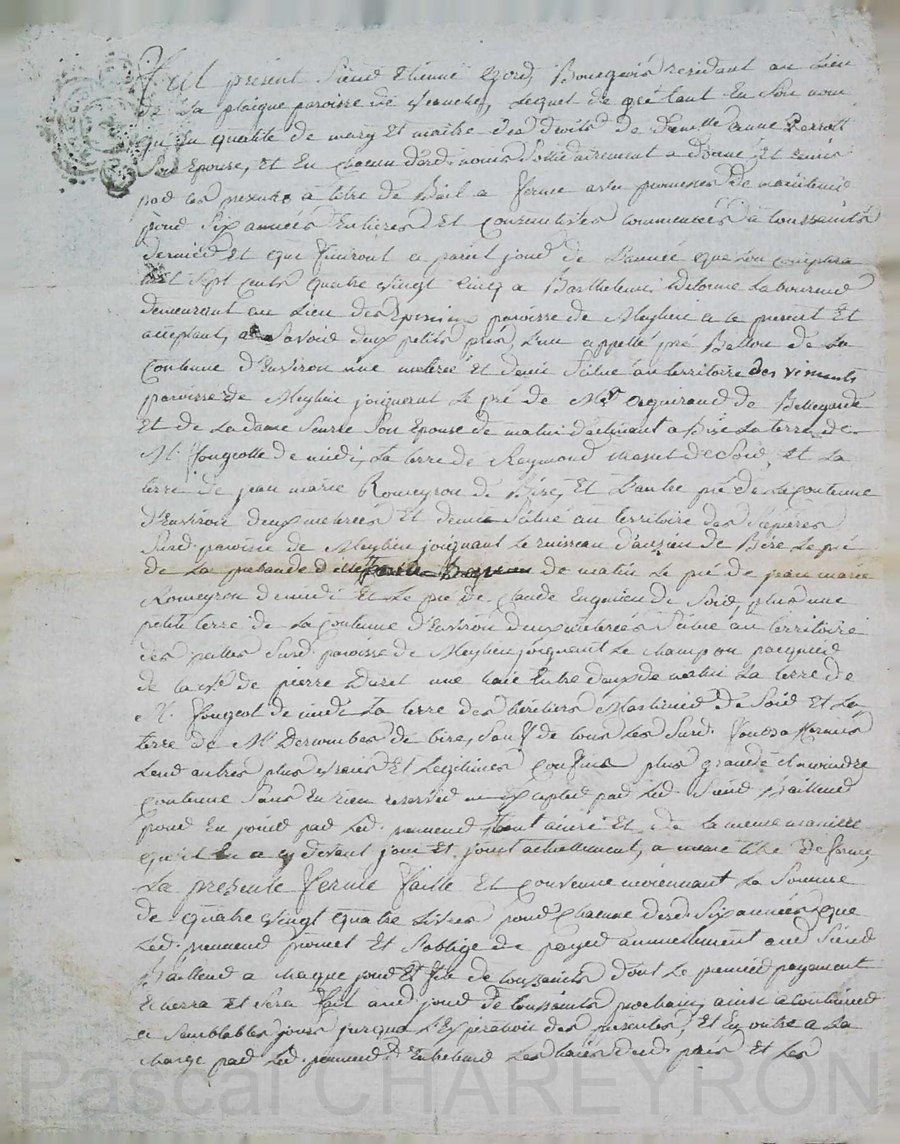 Fut présent Sieur Etienne Bourgeois résidant au Lieu
de La plaigne paroisse de Lequel de gré tant En Son nom
qu'En qualité de mary Et maitre des droits de anne
Son Epouse, Et En Chacun desd. noms Solidairement a donné Et remis
par Ces presentes a titre de Bail a ferme avec promesse de maintenir
pour Six années Entieres Et Consecutives Commencées a toussaints
dernier Et qui finiront a pareil jour de L'année que Lon Comptera
mil Sept Cents quatre vingt Cinq a Barthelemi Delorme Laboureur
demeurant au Lieu des paroisse de Meylieu a ce présent Et
acceptant, Savoir deux petits prés, L'un appellé pré Ballon de La
Contenue d'Environ une metrée Et demie Situé au territoire des
paroisse de Meylieu joignant Le pré de Mr de Bellegarde
Et de La dame Son Epouse de matin a Bize La terre de
M. Fougerolle de midi, La terre de Raymond de Soir, Et La
terre de jean marie Romeyron de Bize, Et L'autre pré de La Contenue
d'Environ deux metrées Et demie Situé au territoire des
Surd. paroisse de Meylieu joignant Le ruisseau d'auzieu de Bize Le pré
de La prebande de matin Le pré de jean marie
Romeyron de midi Et Le pré de Claude de Soir, plus une
petite terre de La Contenue d'Environ deux metrées Situé au territoire
des Surd. paroisse de Meylieu joignant Le Champ ou pacquier
de la ve de pierre Duret une haie Entre deux de matin La terre de
M. Fougerol de midi La terre des heritiers de Soir Et La
terre de M. Descombes de bize, Sauf de tous Les Surd.
Leurs autres plus vrais Et Legitimes Confins plus grande Et moindre
Contenue Sans En rien reserver ni Excepter par Led. Sieur Bailleur
pour En jouir par Led. preneur tout ainsi Et de la même maniere
qu'il En a cy devant joui Et jouit actuellement, a même titre de ferme
La presente ferme faitte Et Convenue moiennant La Somme
de quatre vingt quatre Livres pour Chacune desd. Six années que
Led. preneur promet Et S'oblige de payer annuellement aud. Sieur
Bailleur a Chaque jour Et fete de toussaints dont Le premier payement
Echerra Et Sera fait aud. jour de toussaints prochain, ainsi a Continuer
a Semblables jours jusqu'a L'Expiration des presentes, Et En outre a La
Charge par Led. preneur d'Entretenir Les haies desd. prés Et Les
Pascal CHAREYRON